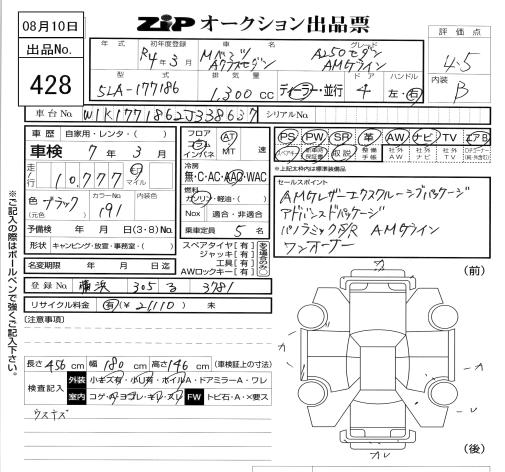 08月10日
出品No.
428
ZIP オークション出品票
評価点
4.5
内装
B
年式
初年度登録
R4年3月
車名
Mベンツ
Aクラスセダン
グレード
A250セダン
AMGライン
型式
5LA-177186
排気量
1,300 cc
ディーラー・並行
ドア
4
ハンドル
左・右
車台No. W1K1771862J338637
シリアルNo.
車歴 自家用・レンタ・( )
車検 7年 3月
走行 10,777 km マイル
色 (元色) ブラック
カラーNo. 191
内装色
予備検 年 月 日(3・8)No.
形状 キャンピング・放宣・事務室・( )
名変期限 年 月 日迄
フロア
コラム
インパネ
AT
MT 速
冷房
無・C・AC・AAC・WAC
燃料
ガソリン・軽油・( )
Nox 適合・非適合
乗車定員 5 名
スペアタイヤ【有】
ジャッキ【有】
工具【有】
AWロックキー【有】
PS PW SR 革 AW ナビ TV エアB
スペアキー 取説 整備手帳 社外AW 社外ナビ 社外TV
※上記枠内は標準装備品
セールスポイント
AMGレザーエクスクルーシブパッケージ
アドバンスドパッケージ
パノラミックS/R AMGライン
ワンオーナー
登録No. 横浜 305 ろ 3781
リサイクル料金 有(¥ 21,110) 未
[注意事項]
長さ 456 cm 幅 180 cm 高さ 146 cm (車検証上の寸法)
検査記入 外装 小キズ有・小凹有・ボイルA・ドアミラーA・ワレ
室内 コゲ・穴・ヨゴレ・キズ・スレ FW トビ石・A・×要ス
ウスキズ
※ご記入の際はボールペンで強くご記入下さい。
(前)
(後)